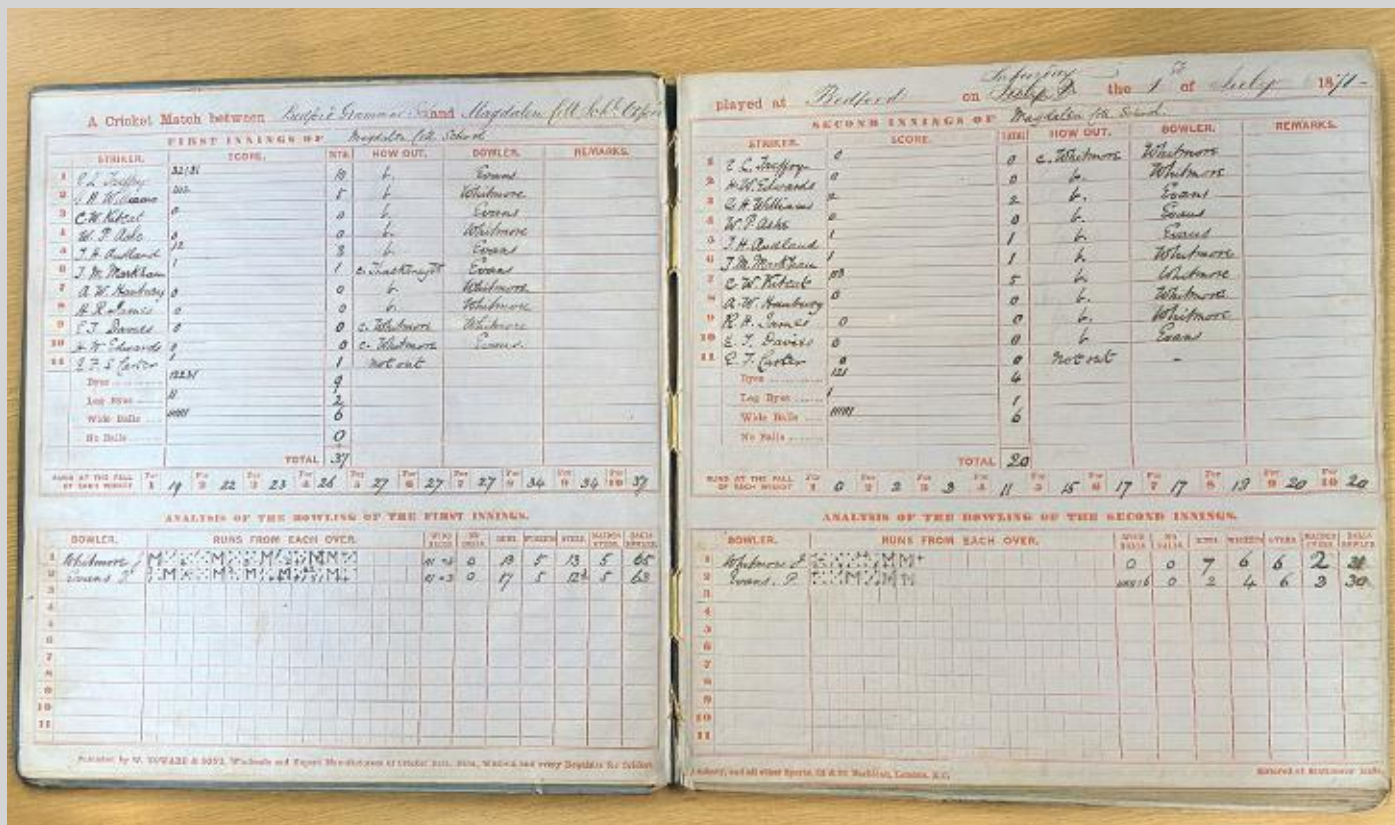 A Cricket Match between Bedford Grammar S. and Magdalen Coll. Sch. Oxford
FIRST INNINGS OF Magdalen Coll. School
STRIKER. SCORE. HOW OUT. BOWLER. REMARKS.
1 E L Treffry 32131 10 b. Evans
2 G H Williams 212 5 b Whitmore
3 C W Kitcat 0 0 b Evans
4 W. P. Ashe 0 0 b. Whitmore
5 J. H. Audland 12 3 b. Evans
6 J. M. Markham 1 1 Evans
7 A. W. Hanbury 0 0 b. Whitmore
8 H R James 0 0 b. Whitmore
9 E. T. Davies 0 0 c. Whitmore Whitmore
10 H W Edwards 0 0 c. Whitmore Evans
11 Carter 1 1 not out
Byes 12231 9
Leg Byes 11 2
Wide Balls 6
No Balls 0
TOTAL 37
RUNS AT THE FALL OF EACH WICKET For 1 19 For 2 22 For 3 23 For 4 26 For 5 27 For 6 27 For 7 27 For 8 34 For 9 34 For 10 37
ANALYSIS OF THE BOWLING OF THE FIRST INNINGS.
BOWLER. RUNS FROM EACH OVER. WIDE BALLS NO BALLS RUNS WICKETS OVERS MAIDEN OVERS BALLS BOWLED
1 Whitmore 0 13 5 13 5 65
2 Evans 0 17 5 5 63
3
4
5
6
7
8
9
10
11
Published by W. TOWARD & SONS, Wholesale and Export Manufacturers of Cricket Bats, Balls, Wickets and every Requisite for Cricket
played at Bedford on Saturday the 1st of July 1871-
SECOND INNINGS OF Magdalen Coll. School.
STRIKER. SCORE. HOW OUT. BOWLER. REMARKS.
1 E L. Treffry 0 0 c. Whitmore Whitmore
2 H. W. Edwards 0 0 b. Whitmore
3 G. H. Williams 2 2 b. Evans
4 W. P. Ashe 0 0 b. Evans
5 J. H. Audland 1 1 b. Evans
6 J. M. Markham 1 1 b. Whitmore
7 C. W. Kitcat 113 5 b. Whitmore
8 A. W. Hanbury 0 0 b. Whitmore
9 R H. James 0 0 b. Whitmore
10 E. T. Davies 0 0 b Evans
11 E. T. Carter 0 0 not out -
Byes 121 4
Leg Byes 1 1
Wide Balls 6
No Balls
TOTAL 20
RUNS AT THE FALL OF EACH WICKET For 1 0 For 2 2 For 3 3 For 4 11 For 5 15 For 6 17 For 7 17 For 8 19 For 9 20 For 10 20
ANALYSIS OF THE BOWLING OF THE SECOND INNINGS.
BOWLER. RUNS FROM EACH OVER. WIDE BALLS NO BALLS RUNS WICKETS OVERS MAIDEN OVERS BALLS BOWLED
1 Whitmore J 0 0 7 6 6 2
2 Evans. P 6 0 2 4 6 3 30
3
4
5
6
7
8
9
10
11
Archery, and all other Sports, London, E.C. Entered at Stationers' Hall.